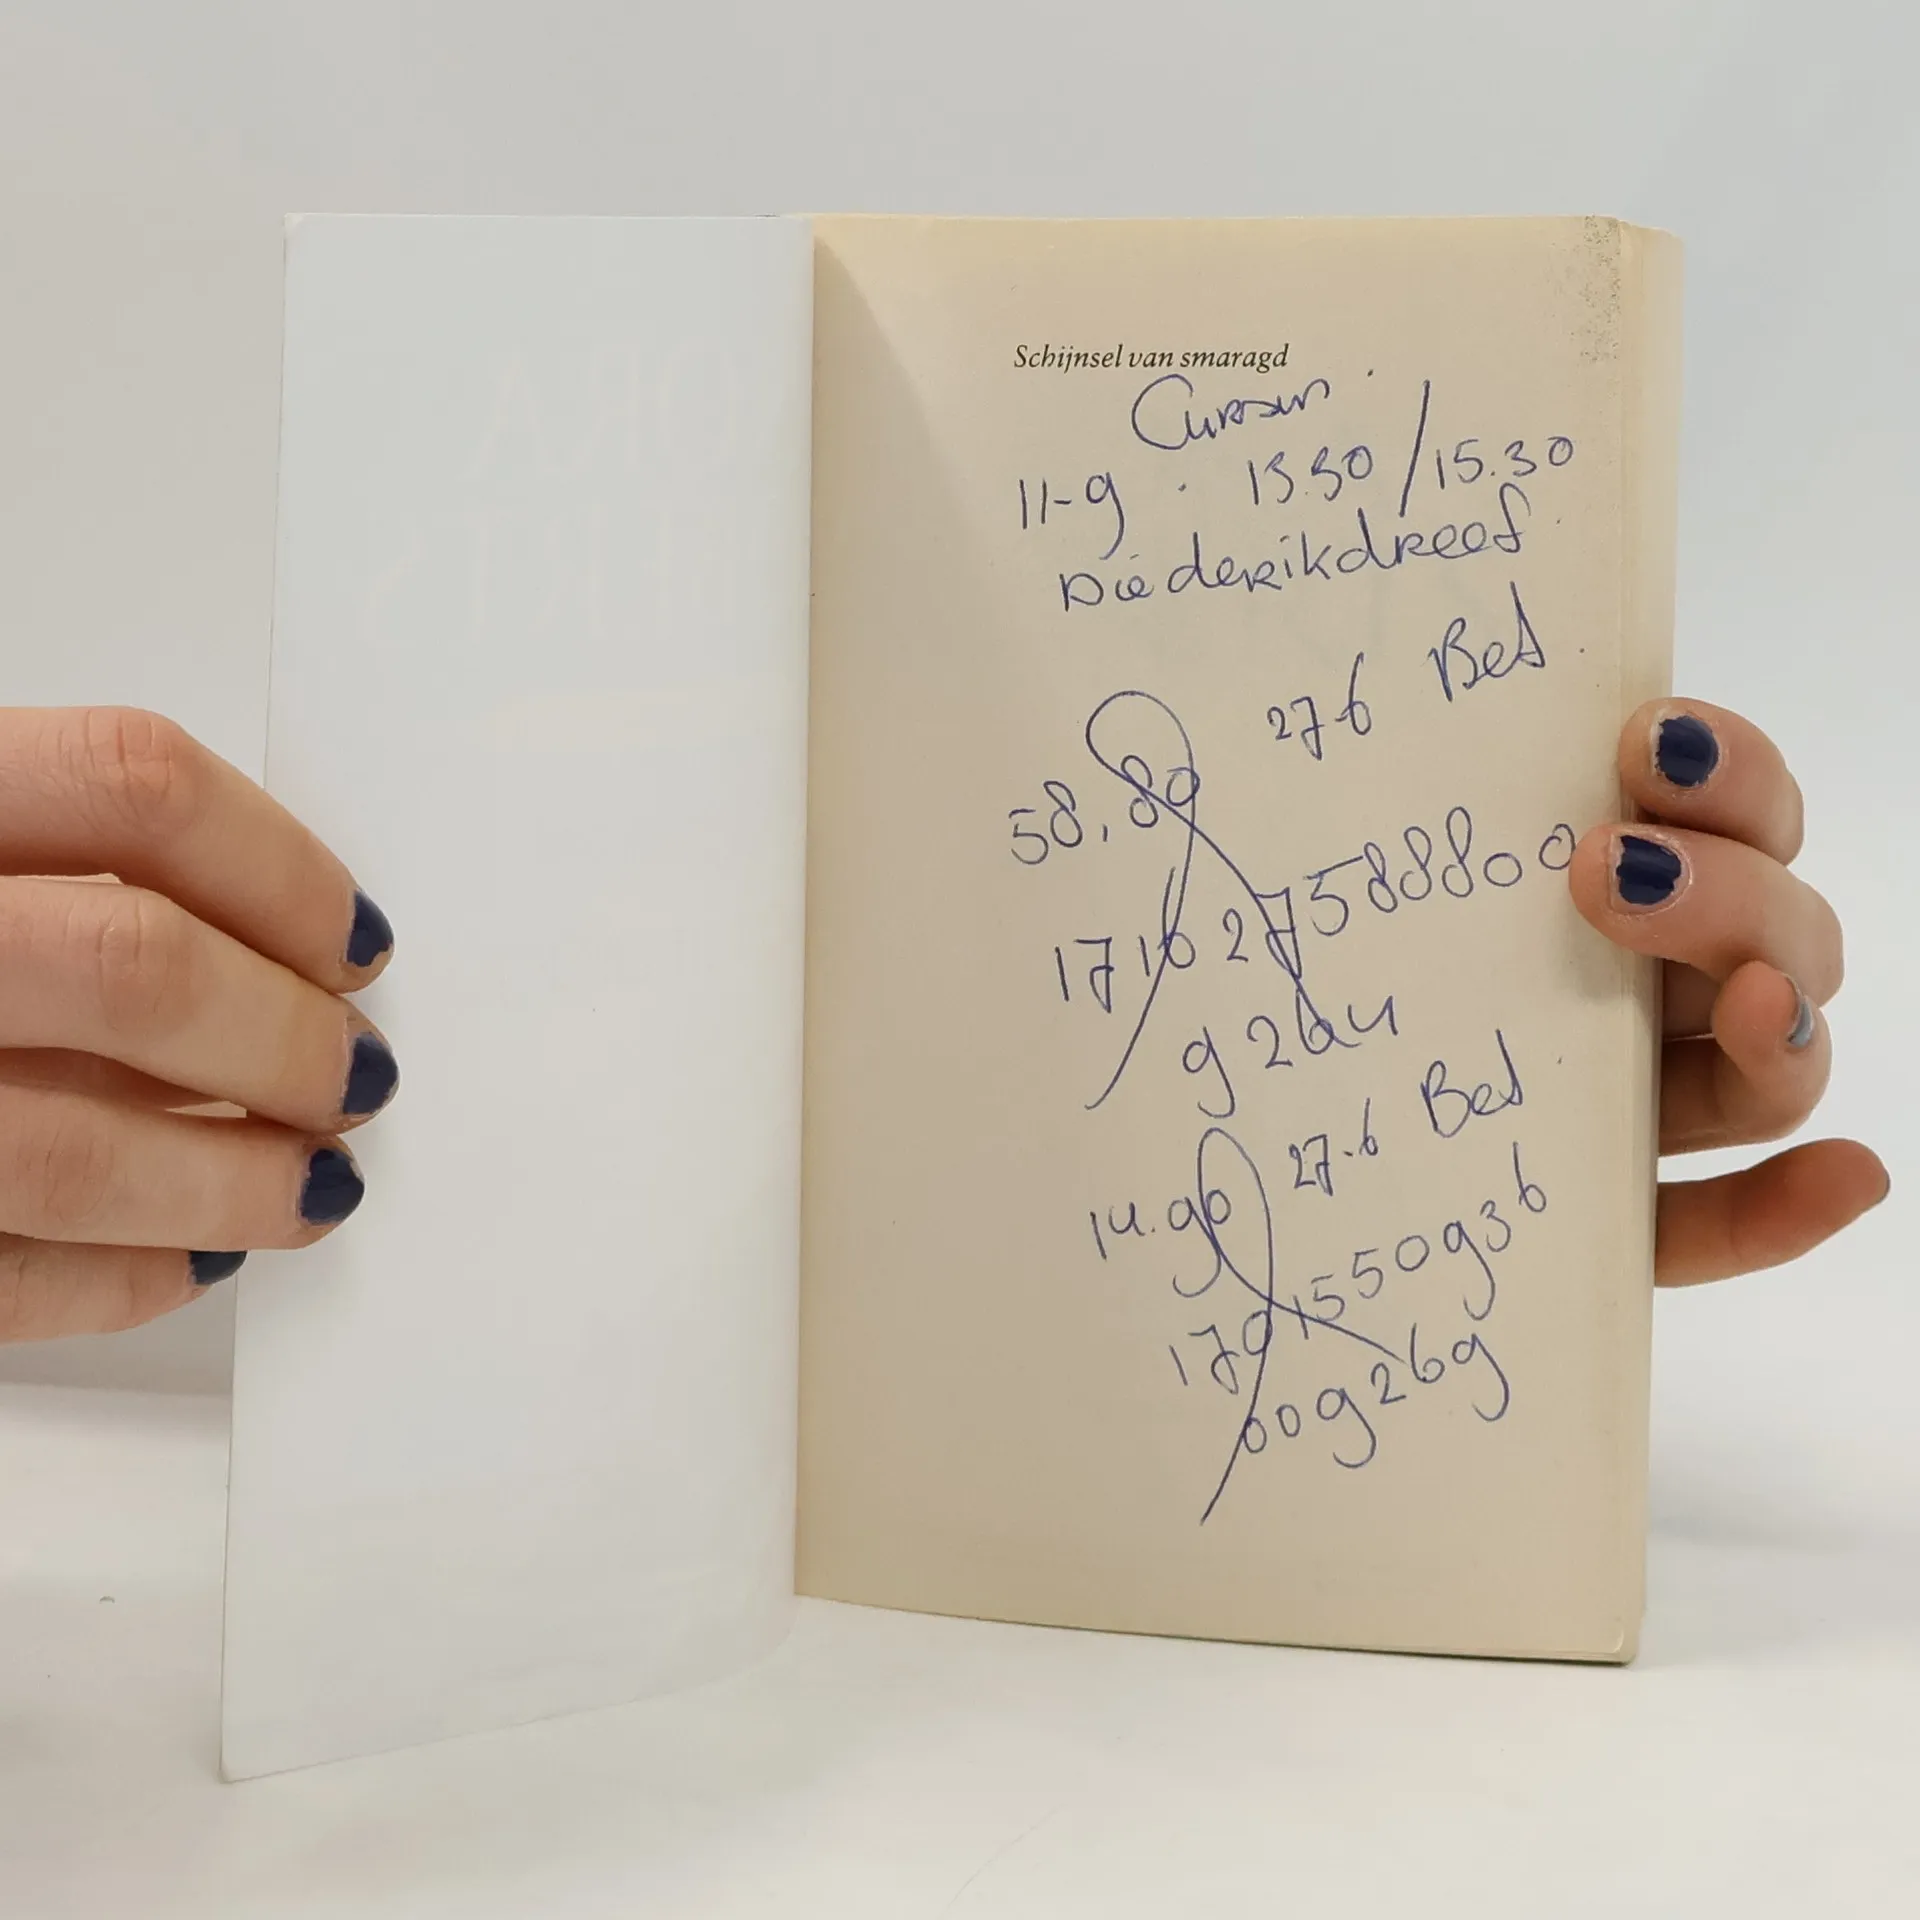 Schijnsel van smaragd
Cursus
11-9 . 13.30 / 15.30
Diederikdreef
27-6 Bet.
58,80
1716 2758 8800
9264
27-6 Bet.
14.90
170 1550936
009269